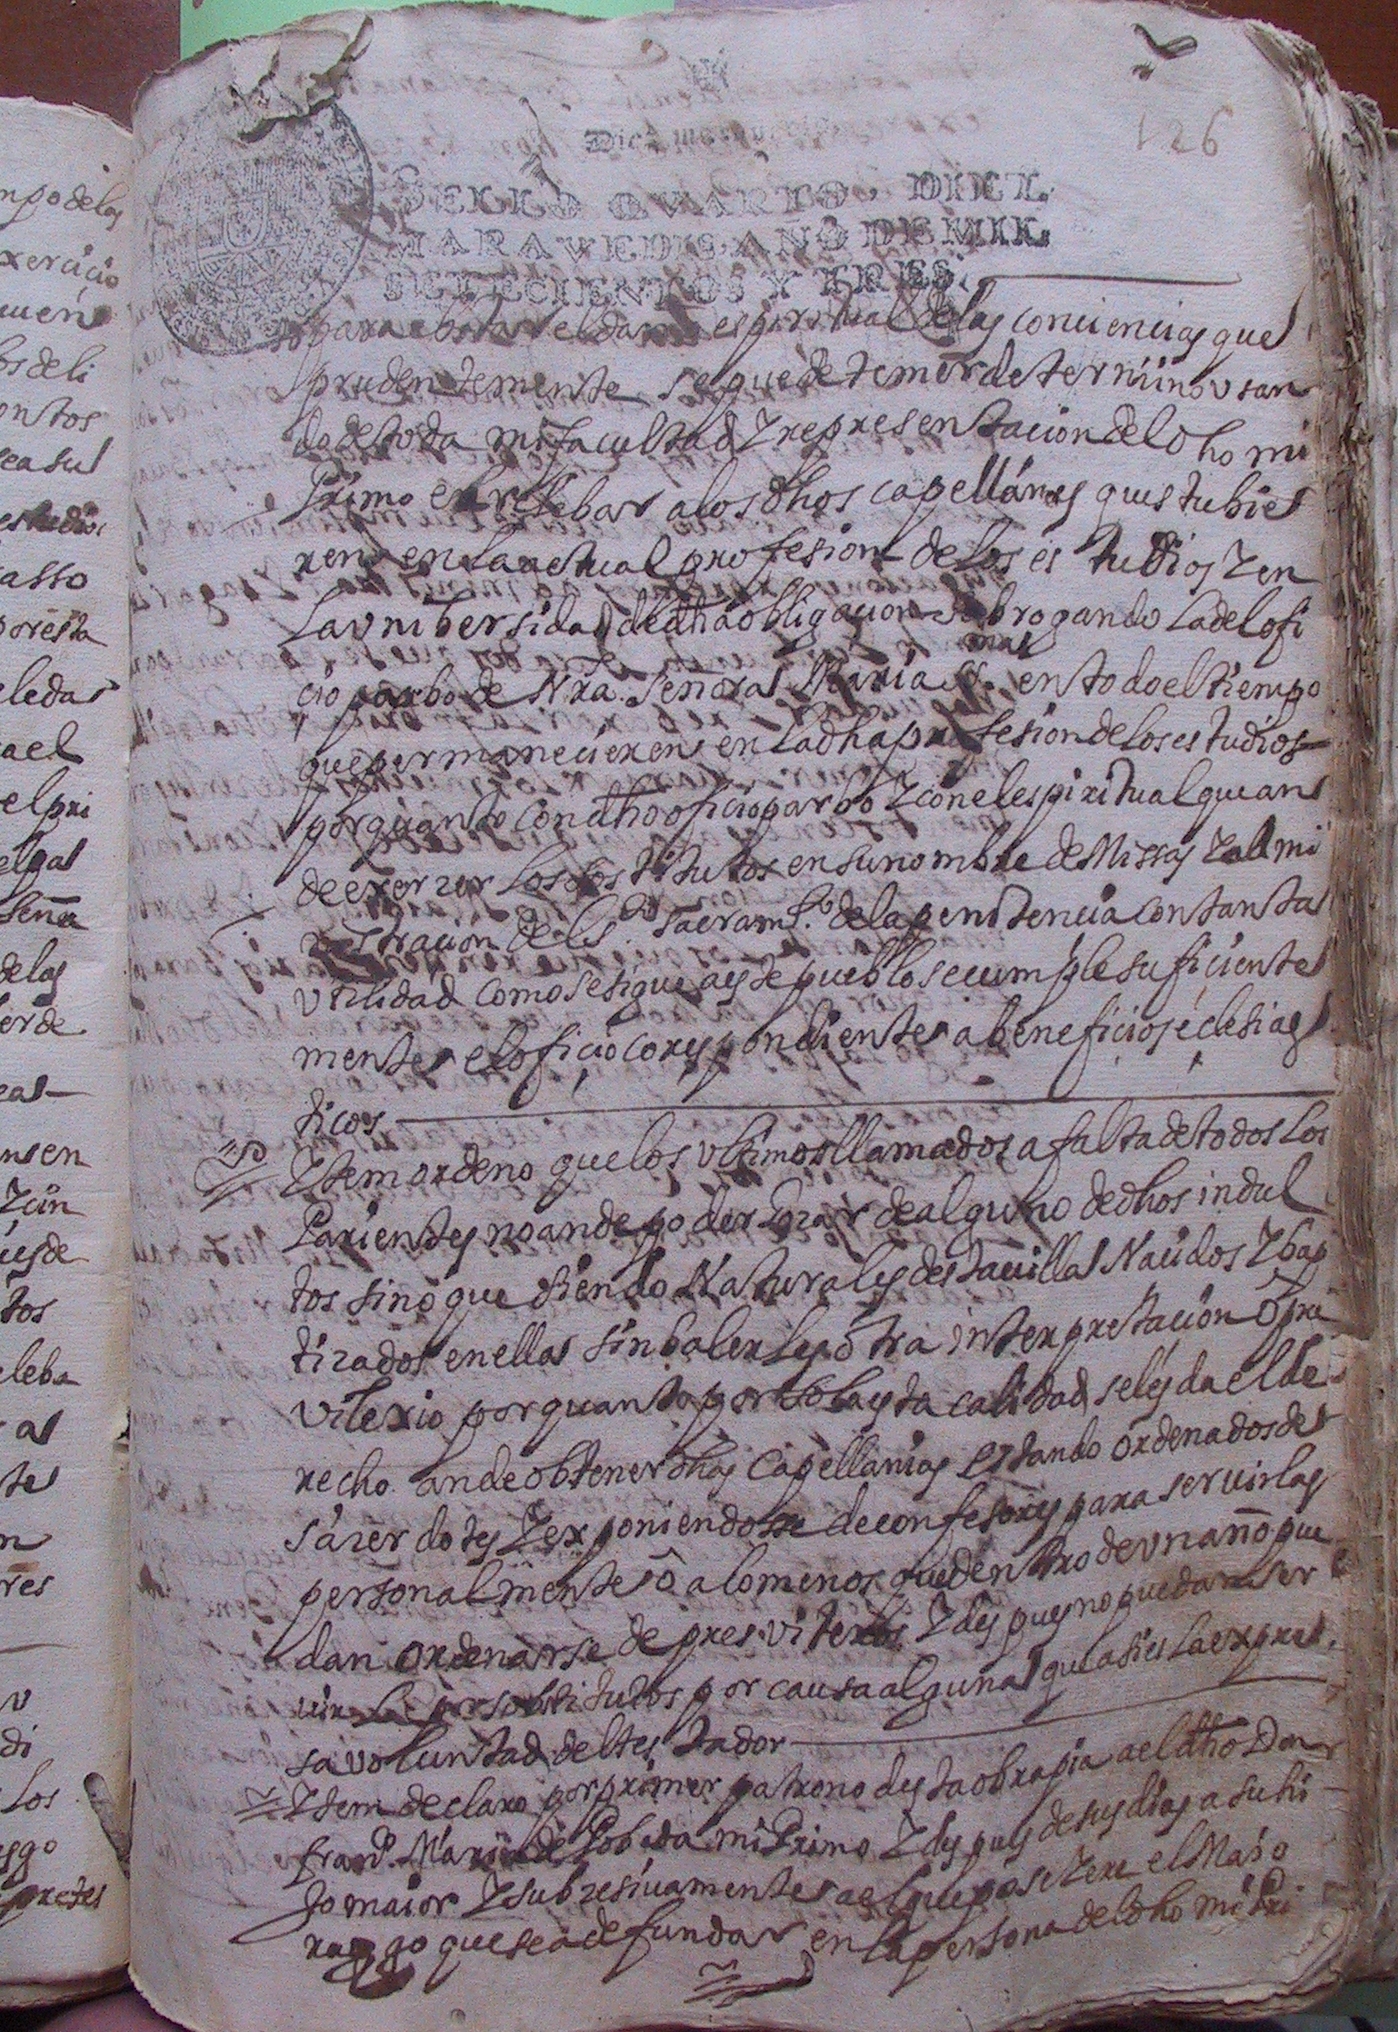 126
Diez maravedis
SELLO QVARTO, DIEZ
MARAVEDIS, AÑO DE MIL
SETECIENTOS Y TRES.
para ebitar el daño espiritual de las conciencias que
prudentemente se puede temer determino vsan
do de toda mi facultad Z representacion del dho mi
Primo el relebar a los dhos capellanes que estubie
ren en la actual profesion de los estudios Z en
la vnibersidad de dha obligacion subrogando la del ofi
cio parbo de Nra. Señora Maria en todo el tiempo
que permanecieren en la dha profesion de los estudios
por quanto con dho oficio parbo Z con el espiritual que an
de exerzer los sostitutos en su nombre de Missas Z admi
nistracion del Sto sacramto. de la penitencia con tanta
vtilidad como se sigue a este pueblo se cumple suficiente
mente el oficio correspondiente a beneficios eclesias
ticos
Ztem ordeno que los vltimos llamados a falta de todos los
Parientes no an de poder gozar de alguno de dhos indul
tos sino que siendo Naturales desta uilla Nacidos Z bap
tizados en ella sin balerles otra interpretacion o pri
vilexio por quanto por sola esta calidad se les da el de
recho an de obtener dhas Capellanias estando ordenados de
sazerdotes Z exponiendose de confesores para seruirlas
personalmente ô a lo menos que dentro de vn año pue
dan ordenarse de presviteros Z despues no puedan ser
uirla por sostitutos por causa alguna que asi es la expre
sa voluntad del testador
Ztem declaro por primer patrono desta obra pia a el dho Don
Franco. Marin de Pobeda mi Primo Z despues de sus dias a su hi
jo maior Z subresiuamente a el que poseZere el Maio
razgo que se a de fundar en la persona del dho mi Pri